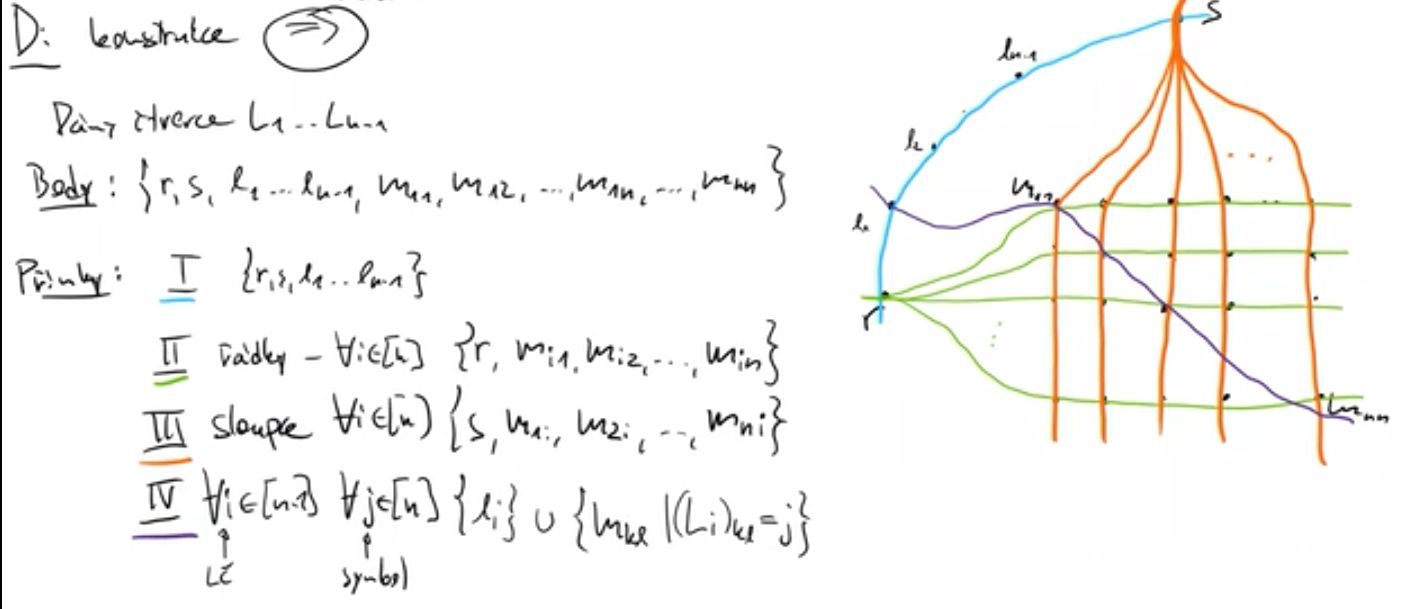 D: konstrukce ⇒
Dány čtverce L₁...Lₙ₋₁
Body: {r, s, l₁...lₙ₋₁, m₁₁, m₁₂, ..., m₁ₙ, ..., mₙₙ}
Přímky: I {r, s, l₁...lₙ₋₁}
II řádky - ∀i∈[n] {r, mᵢ₁, mᵢ₂, ..., mᵢₙ}
III sloupce ∀i∈[n] {s, m₁ᵢ, m₂ᵢ, ..., mₙᵢ}
IV ∀i∈[n-1] ∀j∈[n] {lᵢ} ∪ {mₖₗ |(Lᵢ)ₖₗ=j}
↑ ↑
LČ symbol
s
lₙ₋₁
l₂
m₁₁
l₁
r
mₙₙ